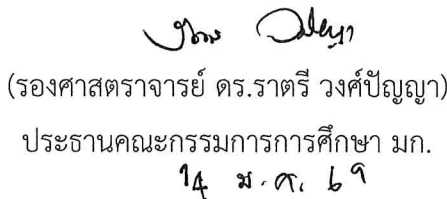 (รองศาสตราจารย์ ดร.ราตรี วงศ์ปัญญา)
ประธานคณะกรรมการการศึกษา มก.
14 ม.ค. 69